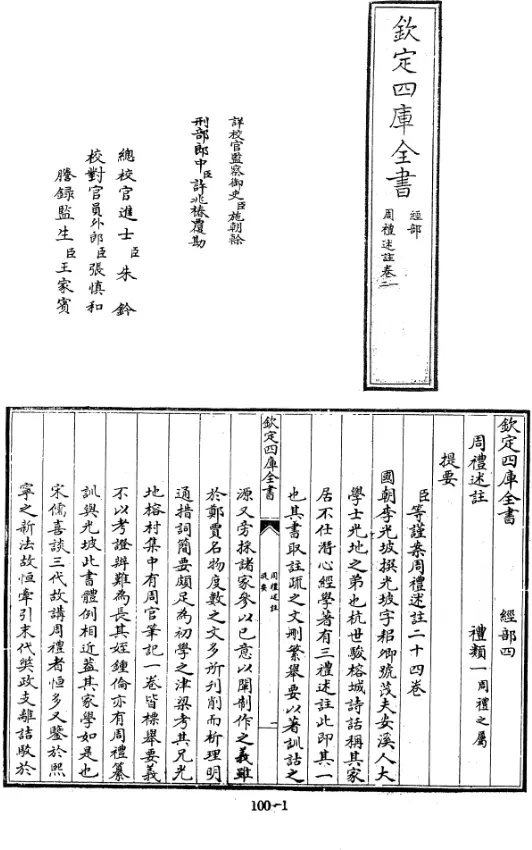 欽定四庫全書
經部
周禮述註卷一
詳校官監察御史臣施朝幹
刑部郎中臣許兆椿覆勘
總校官進士臣朱鈐
校對官員外郎臣張慎和
謄錄監生臣王家賓
欽定四庫全書 經部四
周禮述註 禮類一周禮之屬
提要
臣等謹案周禮述註二十四卷
國朝李光坡撰光坡字耜卿號茂夫安溪人大
學士光地之弟也杭世駿榕城詩話稱其家
居不仕潛心經學著有三禮述註此即其一
也其書取註疏之文刪繁舉要以著訓詁之
欽定四庫全書
周禮述註
提要
一
源又旁採諸家參以己意以闡制作之義雖
於鄭賈名物度數之文多所刊削而析理明
通措詞簡要頗足為初學之津梁考其兄光
地榕村集中有周官筆記一卷皆標舉要義
不以考證辨難為長其姪鍾倫亦有周禮纂
訓與光坡此書體例相近蓋其家學如是也
宋儒喜談三代故講周禮者恒多又鑒於熙
寧之新法故恒牽引末代弊政支離詰駁於
100-1